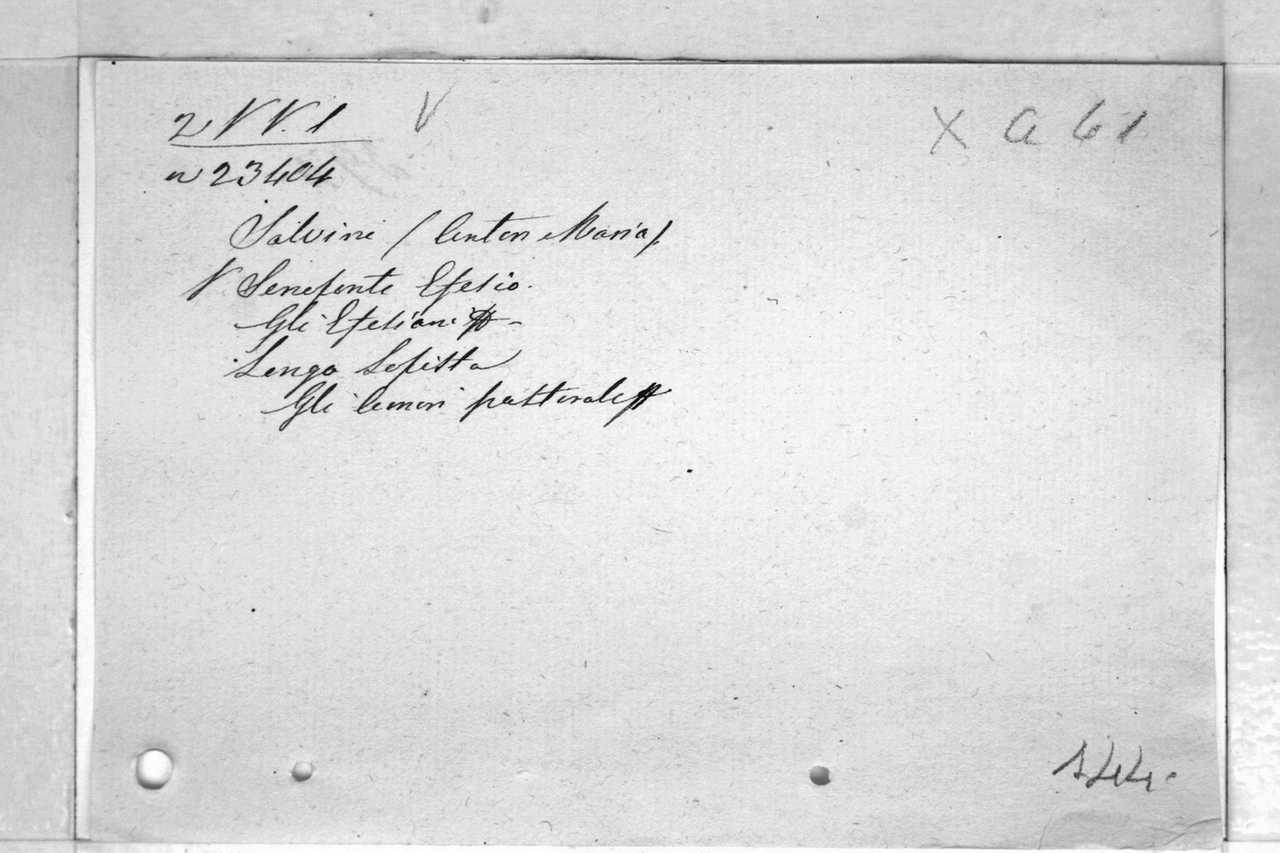 2 V V. 1 V X a 61
n 23404
Salvini (Anton Maria)
V Senefonte Efesio.
Gli Efesiani #
Longo Sofista
Gli Amori pastorali #